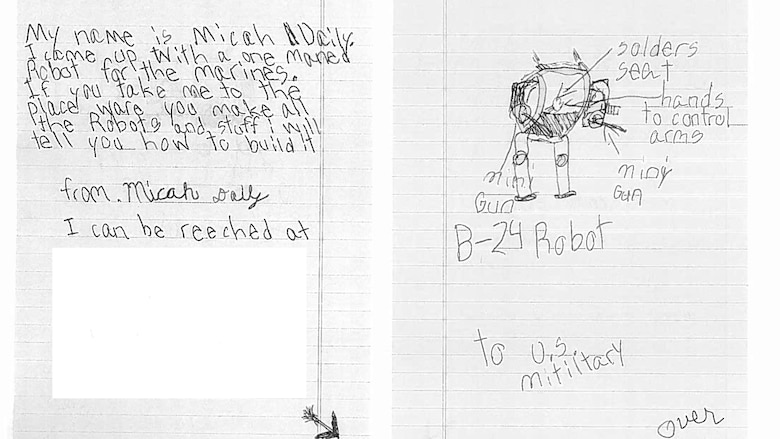 My name is Micah Daily.
I come up with a one maned
Robot for the marines.
If you take me to the
place ware you make all
the Robots and stuff i will
tell you how to build it
from. Micah Daily
I can be reeched at
solders
seat
hands
to control
arms
mini
Gun
miny
Gun
B-24 Robot
to U.S.
mitiltary
over